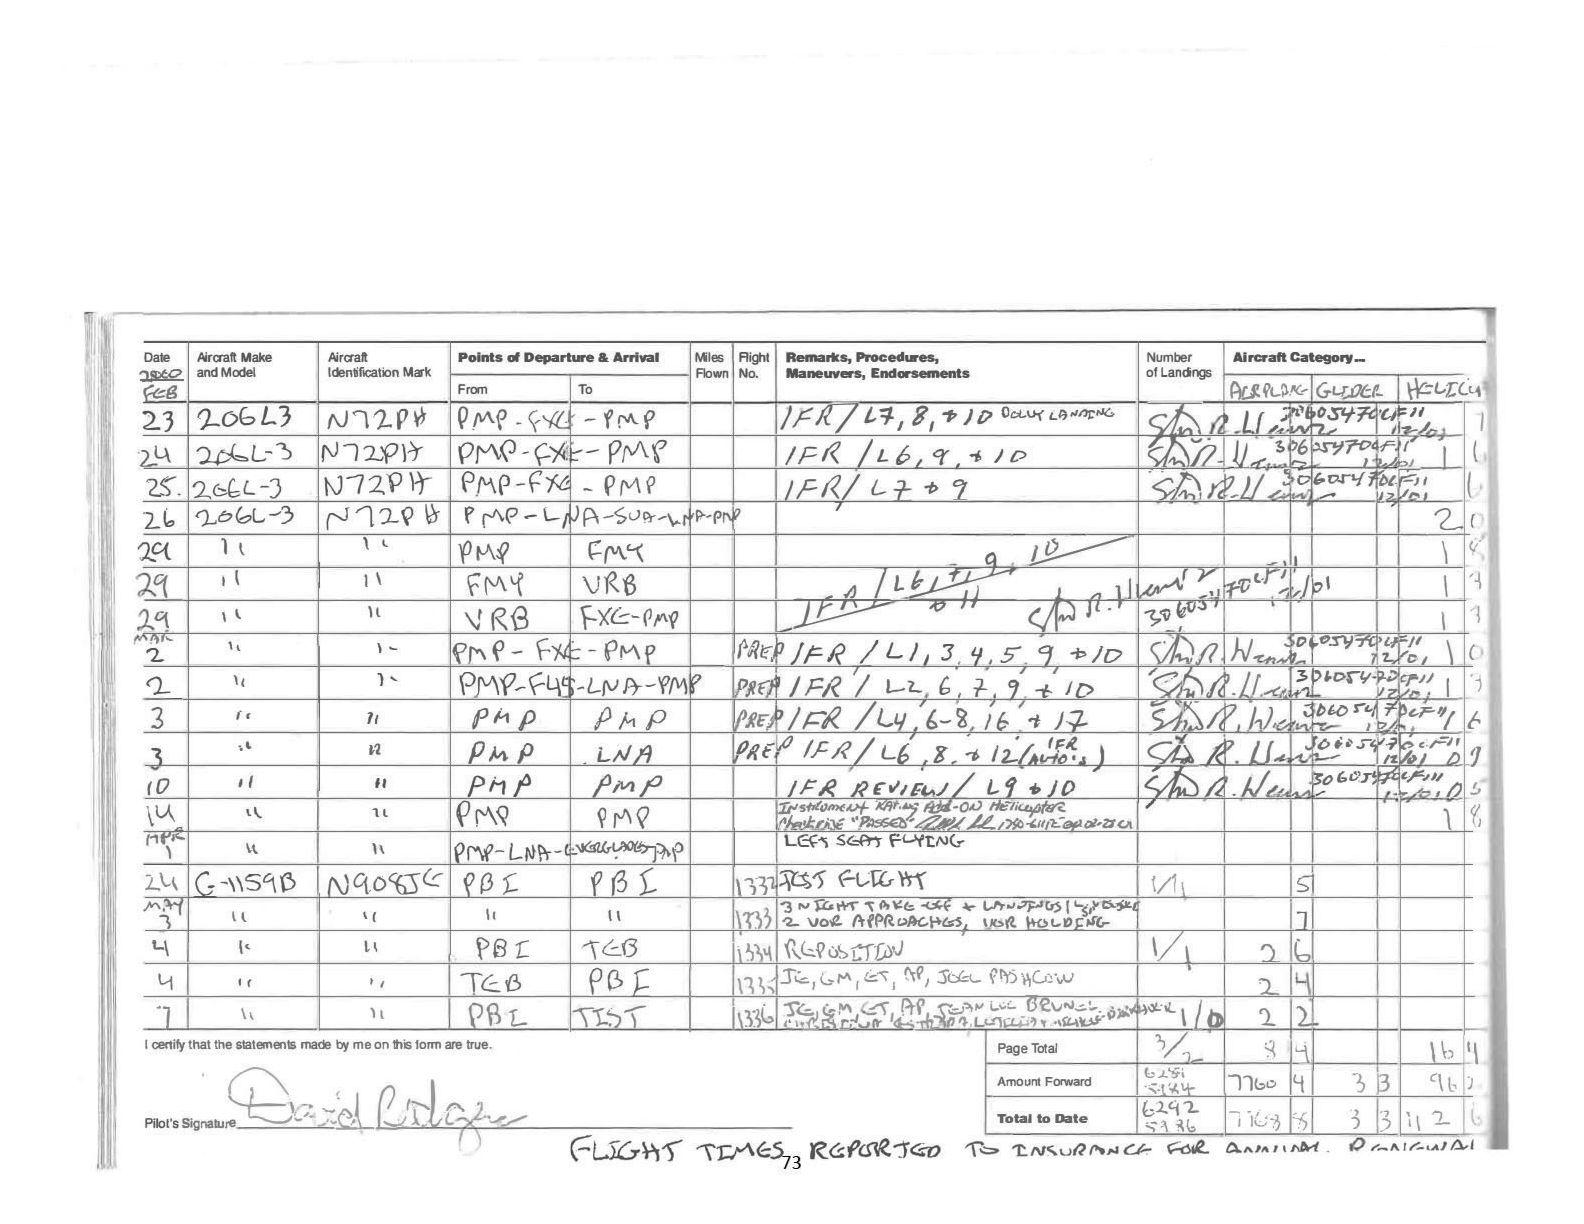 Date Aircraft Make Aircraft Points of Departure & Arrival Miles Flight Remarks, Procedures, Number Aircraft Category...
and Model Identification Mark Flown No. Maneuvers, Endorsements of Landings
FEB From To AIRPLANE GLIDER
23 206L3 N72PH PMP-FXE-PMP IFR/L7, 8, + 10 DOLLY LANDING 12/01
24 206L-3 N72PH PMP-FXE-PMP IFR/L6, 9, + 10 12/01 1 6
25. 206L-3 N72PH PMP-FXE-PMP IFR/L7 + 9 12/01 6
26 206L-3 N72PH PMP-LNA-SUA-LNA-PMP 2 0
29 " " PMP FMY 1 8
29 " " FMY VRB IFR/L6, 7, 9, 10 + 11 12/01 1 3
29 " " VRB FXE-PMP 1 3
MAR
2 " " PMP-FXE-PMP PREP IFR/L1, 3, 4, 5, 9, + 10 1 0
2 " " PMP-F45-LNA-PMP PREP IFR/L2, 6, 7, 9, + 10 1 3
3 " " PMP PMP PREP IFR/L4, 6-8, 16, + 17 1 6
3 " " PMP LNA PREP IFR/L6, 8. + 12 (IFR AUTO'S) 12/01 0 9
10 " " PMP PMP IFR REVIEW/L9 + 10 0 5
14 " " PMP PMP Instrument Rating Add-On Helicopter 1 8
Checkride "PASSED"
APR
1 " " PMP-LNA-EVERGLADES-PMP LEFT SEAT FLYING
24 G-1159B N908JE PBI PBI 1332 TEST FLIGHT 1/1 5
MAY
3 " " " " 1333 3 NIGHT TAKE-OFF + LANDINGS 7
2 VOR APPROACHES, VOR HOLDING
4 " " PBI TEB 1334 REPOSITION 1/1 2 6
4 " " TEB PBI 1335 JE, GM, ET, AP, JOEL PASHCOW 2 4
7 " " PBI TIST 1336 JE, GM, ET, AP, JEAN LUC BRUNEL 1/0 2 2
I certify that the statements made by me on this form are true. Page Total 3/2 8 4 16 4
Amount Forward 7760 4 3 3 96 2
Pilot's Signature David Rodgers Total to Date 6292 7768 8 3 3 112 6
FLIGHT TIMES REPORTED TO INSURANCE FOR ANNUAL RENEWAL
73